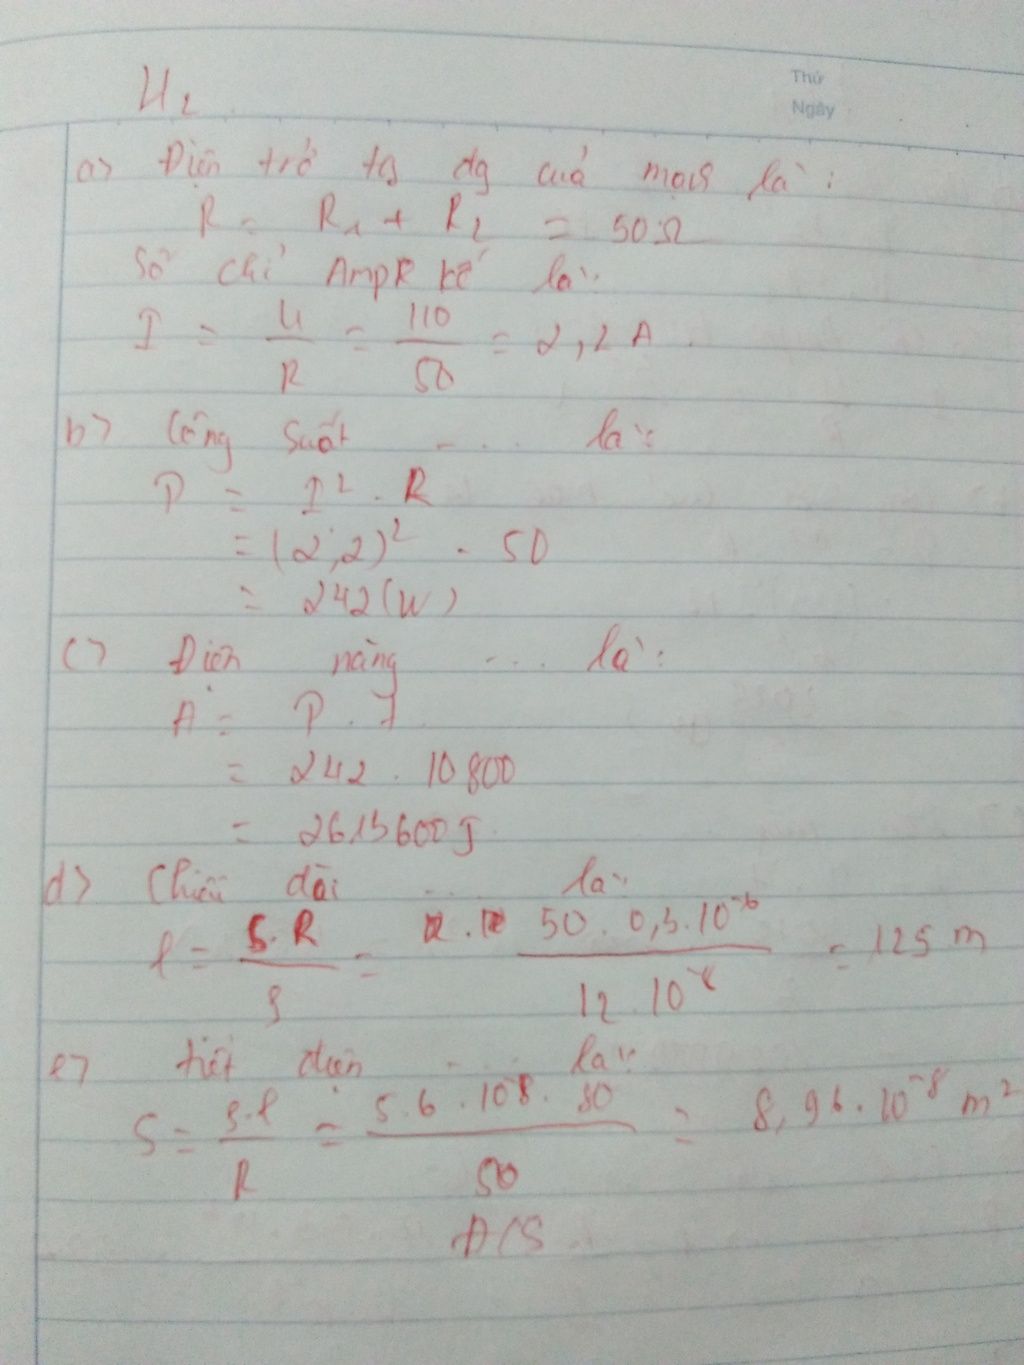 Thứ
Ngày
U2
a) Điện trở tg dg của mạch là:
R = R1 + R2 = 50Ω
Số chỉ AmpR kế là:
I = U/R = 110/50 = 2,2 A.
b) Công suất .... là:
P = I² . R
= (2,2)² . 50
= 242 (W)
c) Điện năng .... là:
A = P . T
= 242 . 10800
= 2613600 J
d) Chiều dài .... là:
l = S.R/ρ = 50 . 0,3 . 10⁻⁶ / 12 . 10⁻⁸ = 125 m
e) tiết diện .... là:
S = ρ.l/R = 5.6 . 10⁻⁸ . 80 / 50 = 8,96 . 10⁻⁸ m²